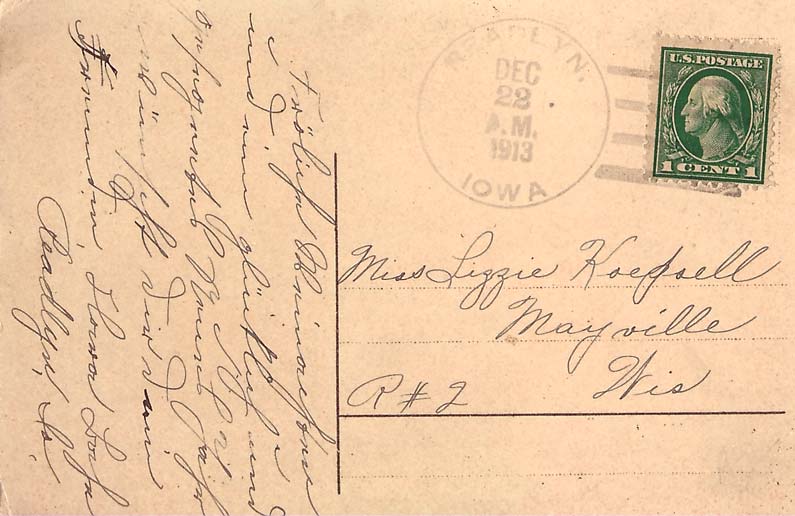 READLYN.
DEC
22
A.M.
1913
IOWA
U.S. POSTAGE
1 CENT 1
Fröliche Weinachten
und ein glücklich und
gesegnetes Neues Jahr
wünscht dir deine
Freundin,
Readlyn, Ia.
Miss Lizzie Koepsell
Mayville
Wis
R#2